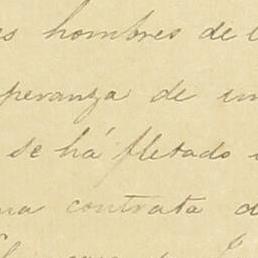 es hombres de l
peranza de un
se há fletado
na contrata d